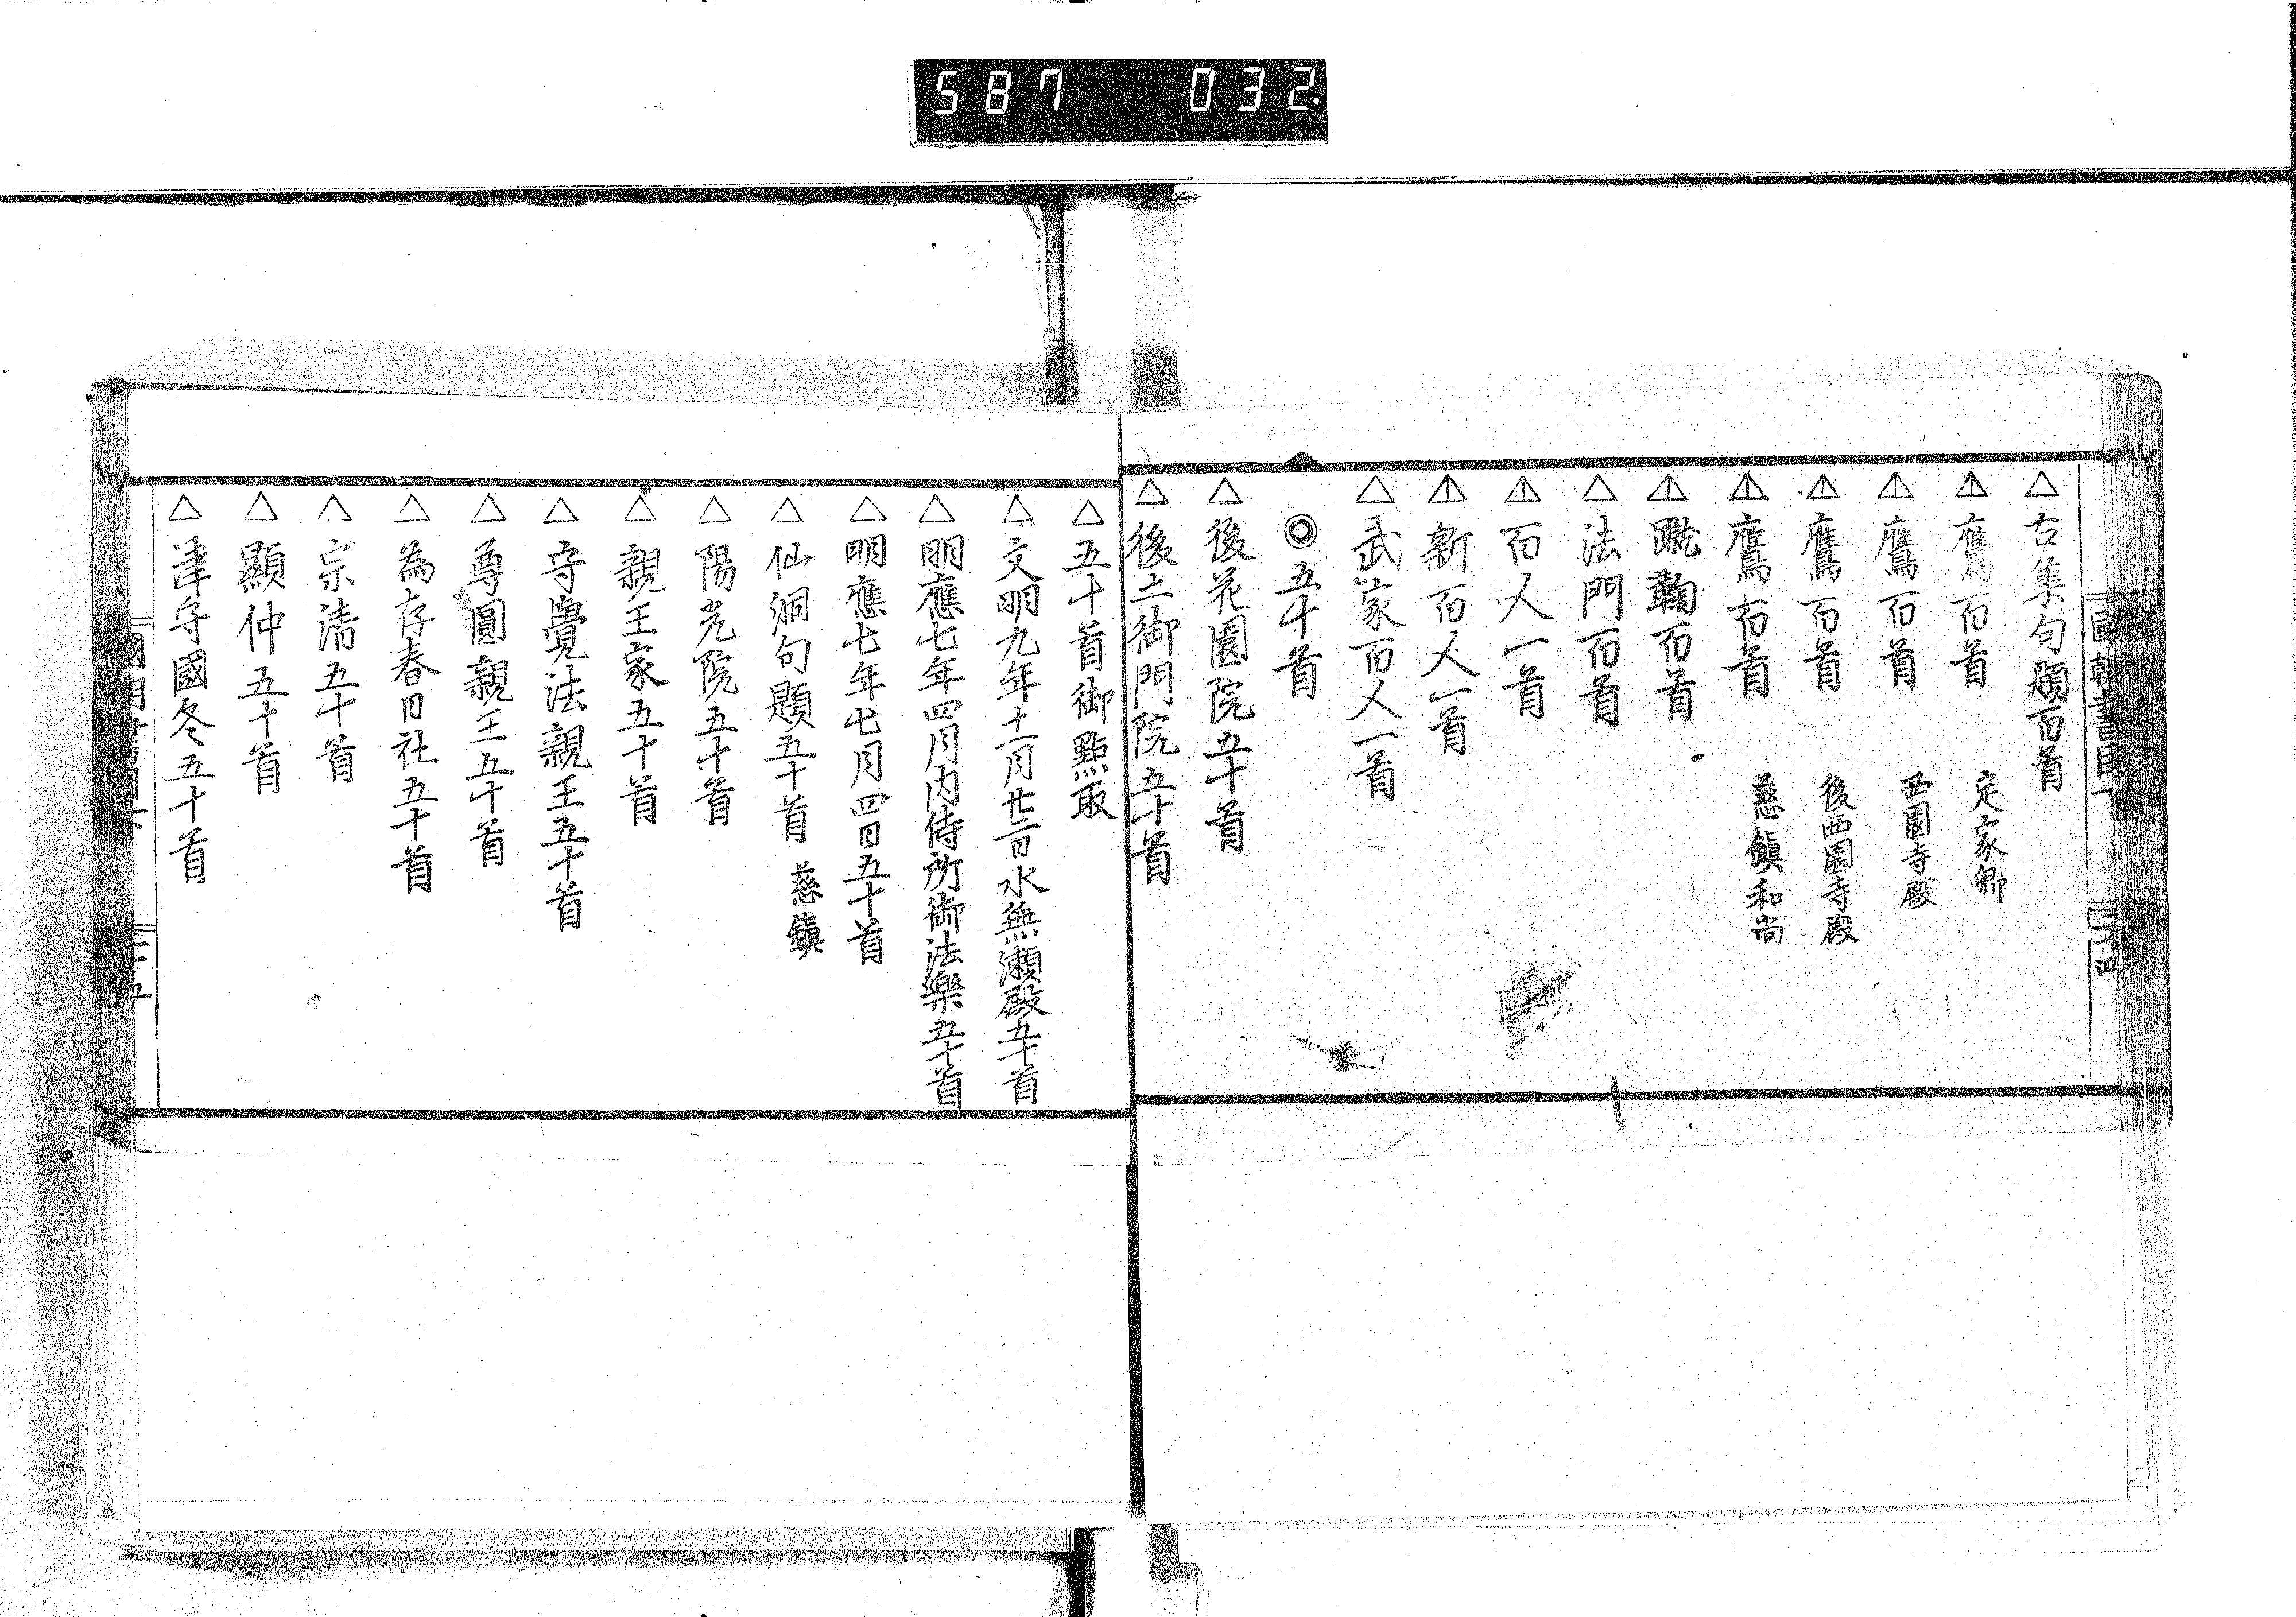 587 032.
國朝書目
二十四
△古集句題百首
△鷹百首 定家卿
△鷹百首 西園寺殿
△鷹百首 後西園寺殿
△鷹百首 慈鎮和尚
△蹴鞠百首
△法門百首
△百人一首
△新百人一首
△武家百人一首
◎五十首
△後花園院五十首
△後土御門院五十首
△五十首御點取
△文明九年十一月廿二日水無瀬殿五十首
△明應七年四月内侍所御法樂五十首
△明應七年七月四日五十首
△仙洞句題五十首 慈鎮
△陽光院五十首
△親王家五十首
△守覺法親王五十首
△尊圓親王五十首
△為存春日社五十首
△宗清五十首
△顯仲五十首
△津守國冬五十首